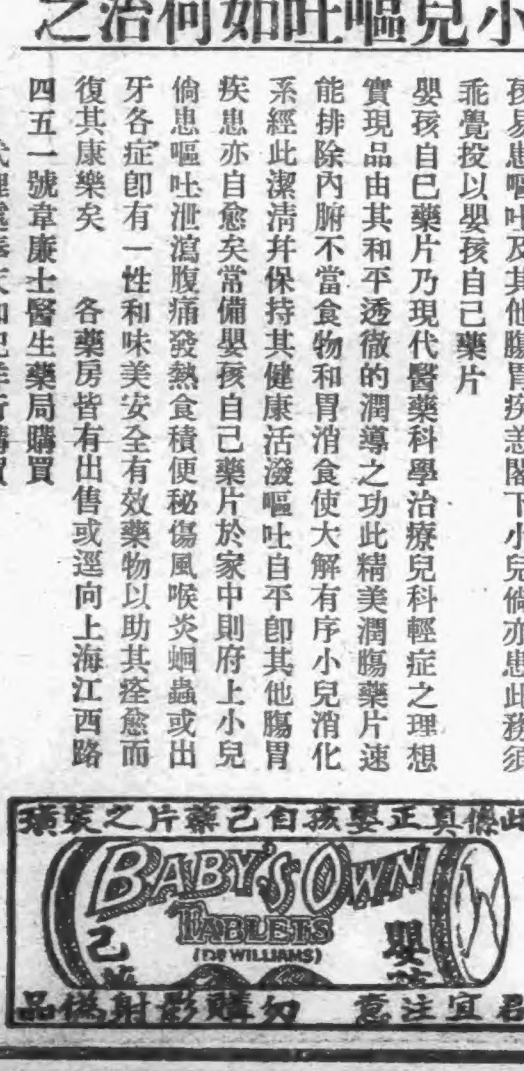 小兒嘔吐如何治之
孩易患嘔吐及其他腸胃疾恙閣下小兒倘亦患此務須
乖覺投以嬰孩自己藥片
嬰孩自已藥片乃現代醫藥科學治療兒科輕症之理想
實現品由其和平透徹的潤導之功此精美潤腸藥片速
能排除內腑不當食物和胃消食使大解有序小兒消化
系經此潔清幷保持其健康活潑嘔吐自平卽其他腸胃
疾患亦自愈矣常備嬰孩自己藥片於家中則府上小兒
倘患嘔吐泄瀉腹痛發熱食積便秘傷風喉炎蛔蟲或出
牙各症卽有一性和味美安全有效藥物以助其痊愈而
復其康樂矣 各藥房皆有出售或逕向上海江西路
四五一號韋廉士醫生藥局購買
此係真正嬰孩自己藥片之裝璜
BABY'S OWN
TABLETS
(DR WILLIAMS)
嬰
己
君宜注意 勿購影射僞品